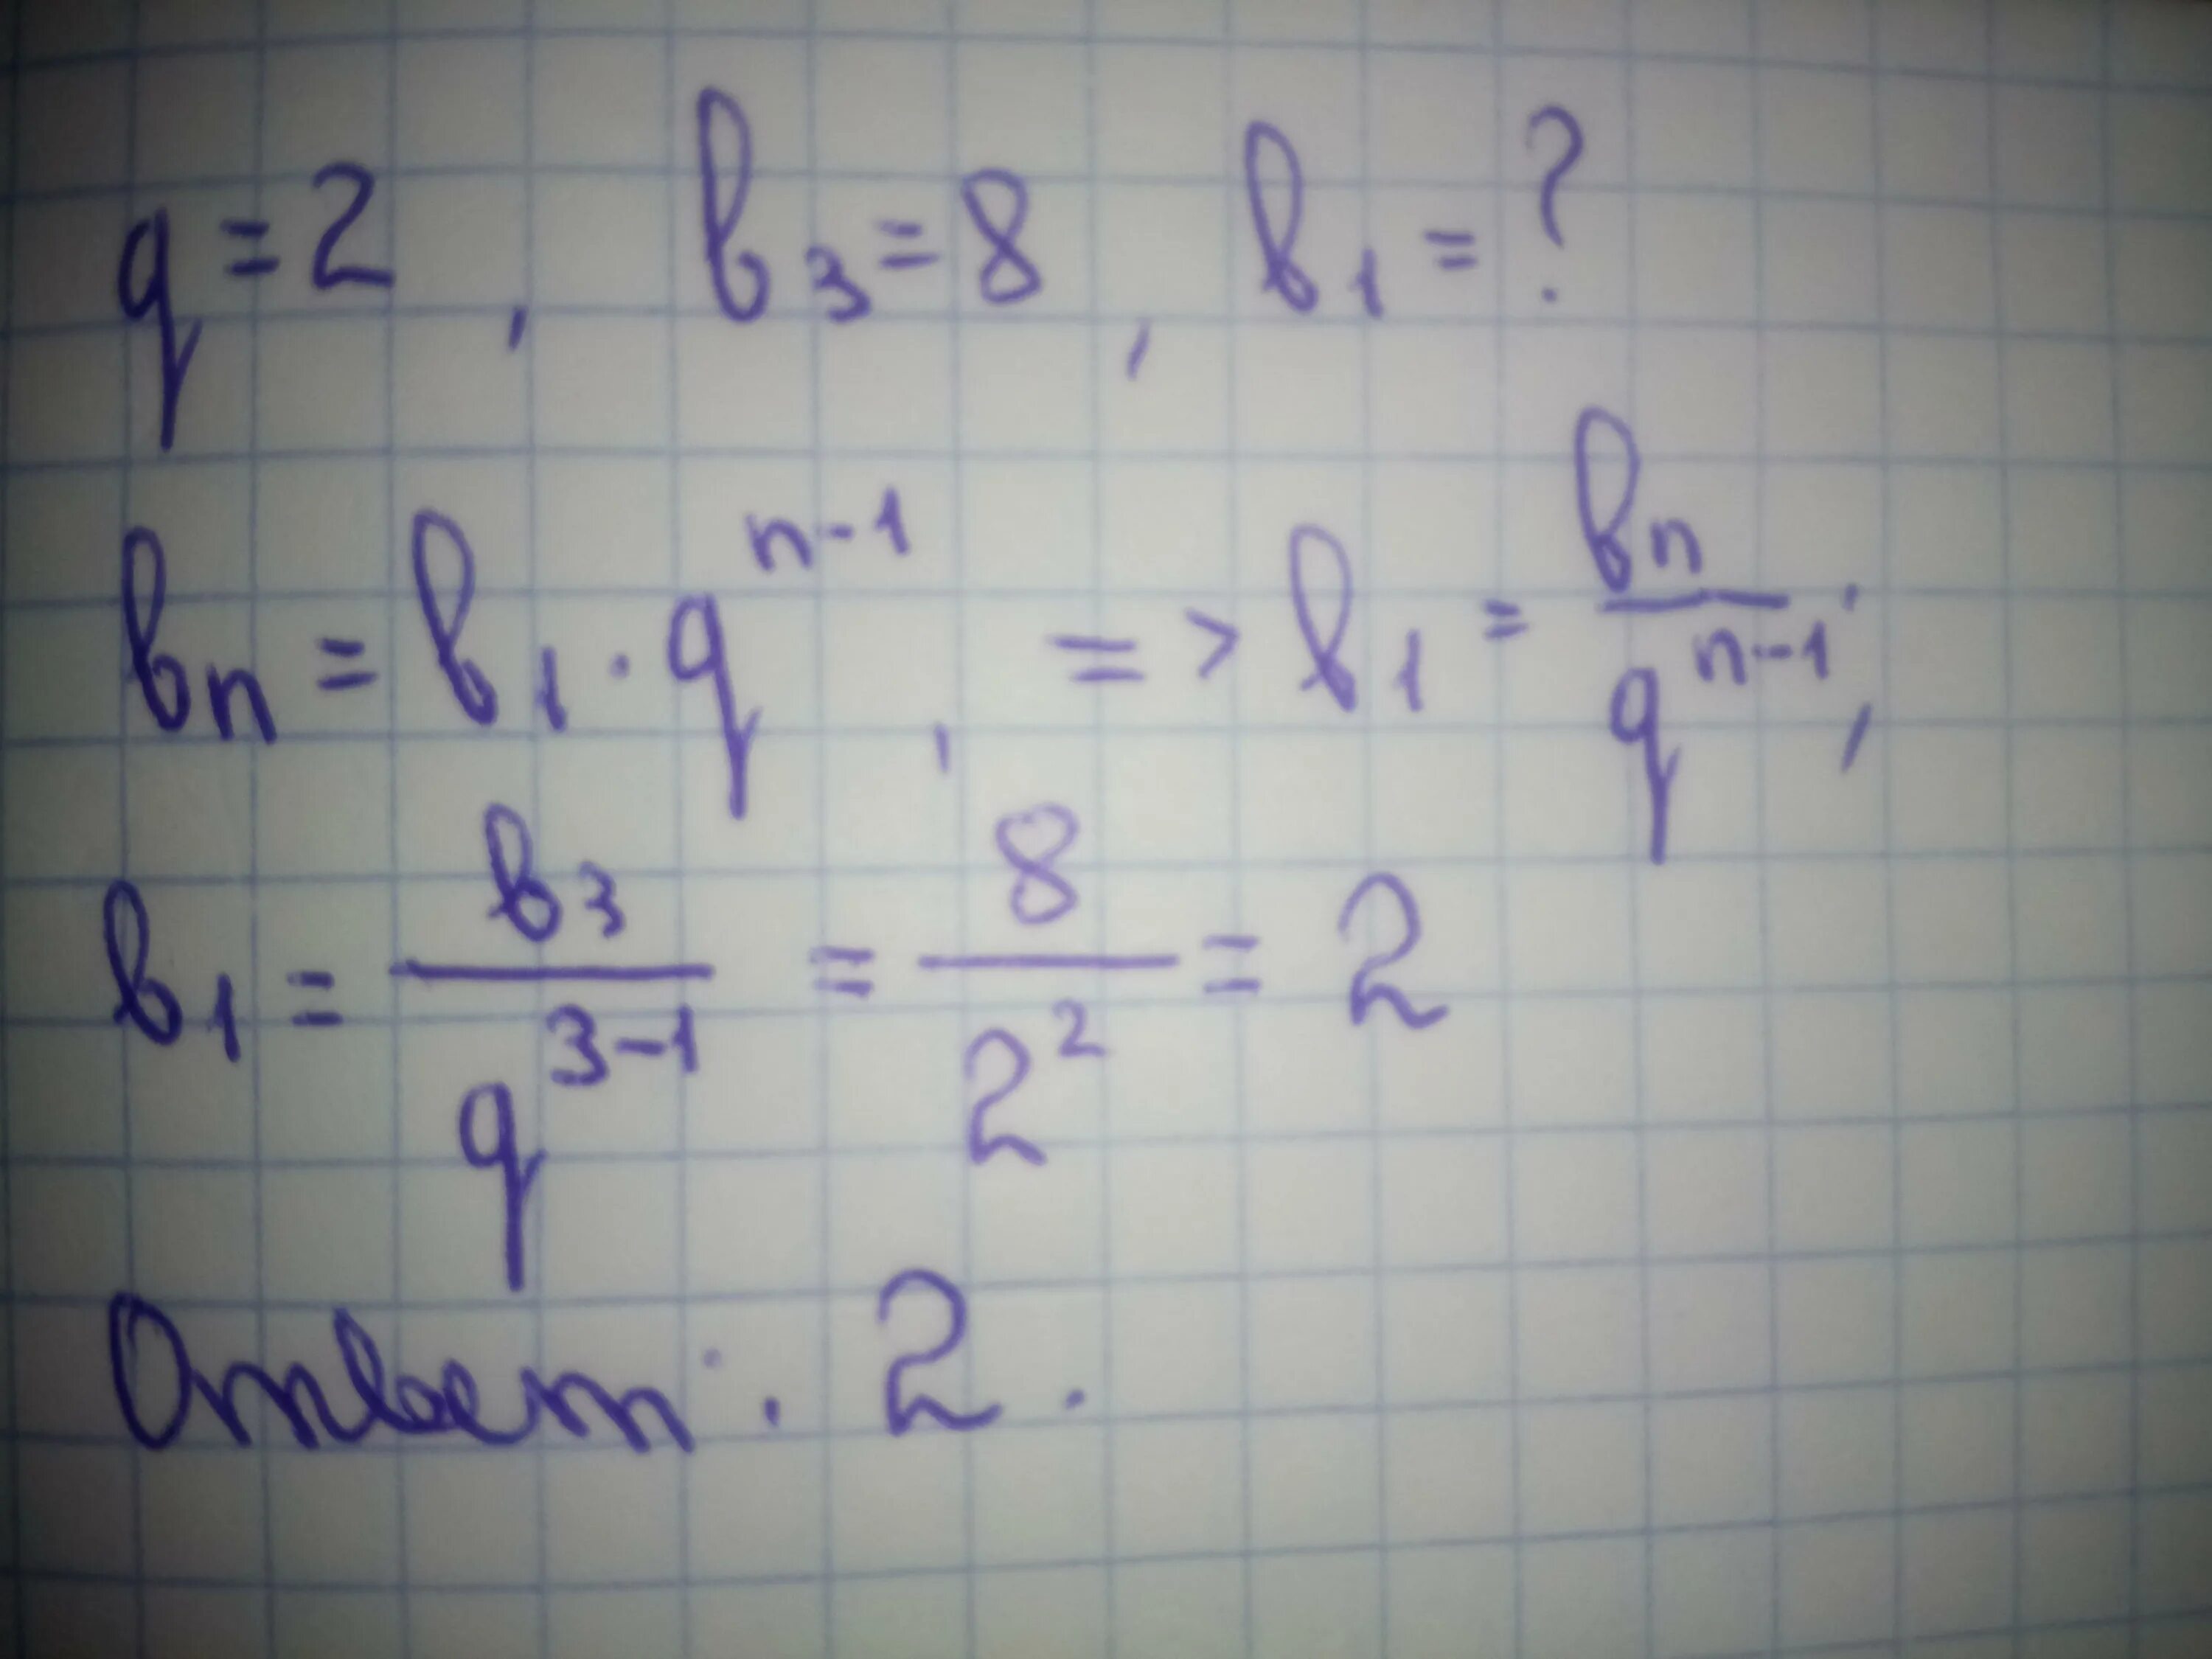 q = 2, b₃ = 8, b₁ = ?
bₙ = b₁ · qⁿ⁻¹, => b₁ = bₙ / qⁿ⁻¹;
b₁ = b₃ / q³⁻¹ = 8 / 2² = 2
Ответ: 2.